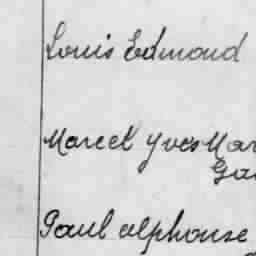 Louis Edmond
Marcel Yves Mar
Ga
Paul alphonse